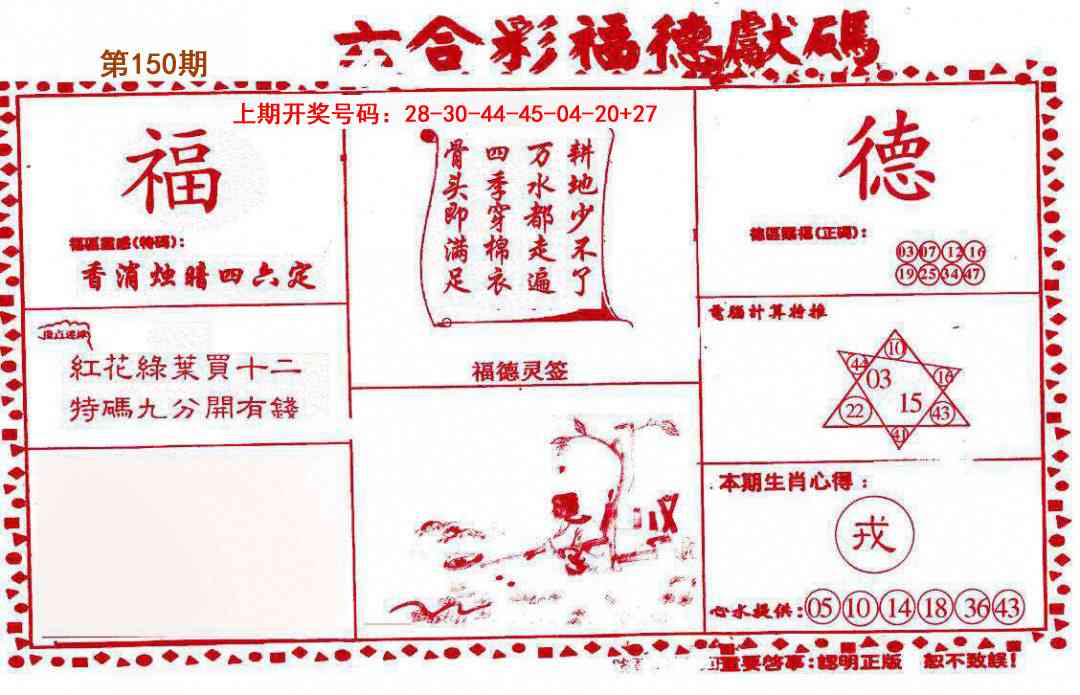 六合彩福德獻碼
第150期
上期开奖号码：28-30-44-45-04-20+27
福
福區靈感(特碼)：
香消烛暗四六定
紅花綠葉買十二
特碼九分開有錢
耕地少不了
万水都走遍
四季穿棉衣
骨头即满足
福德灵签
德
(正碼)：
03 07 12 16
19 25 34 47
電腦計算特推
10
44 03 16
22 15 43
41
本期生肖心得：
戎
心水提供：05 10 14 18 36 43
重要啓事：認明正版 恕不致誤！